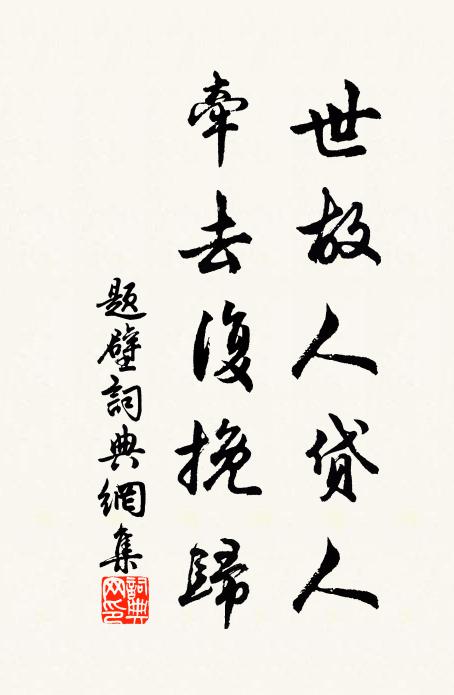 世故人貸人
牽去復挽歸
題壁詞典網集
詞典网印